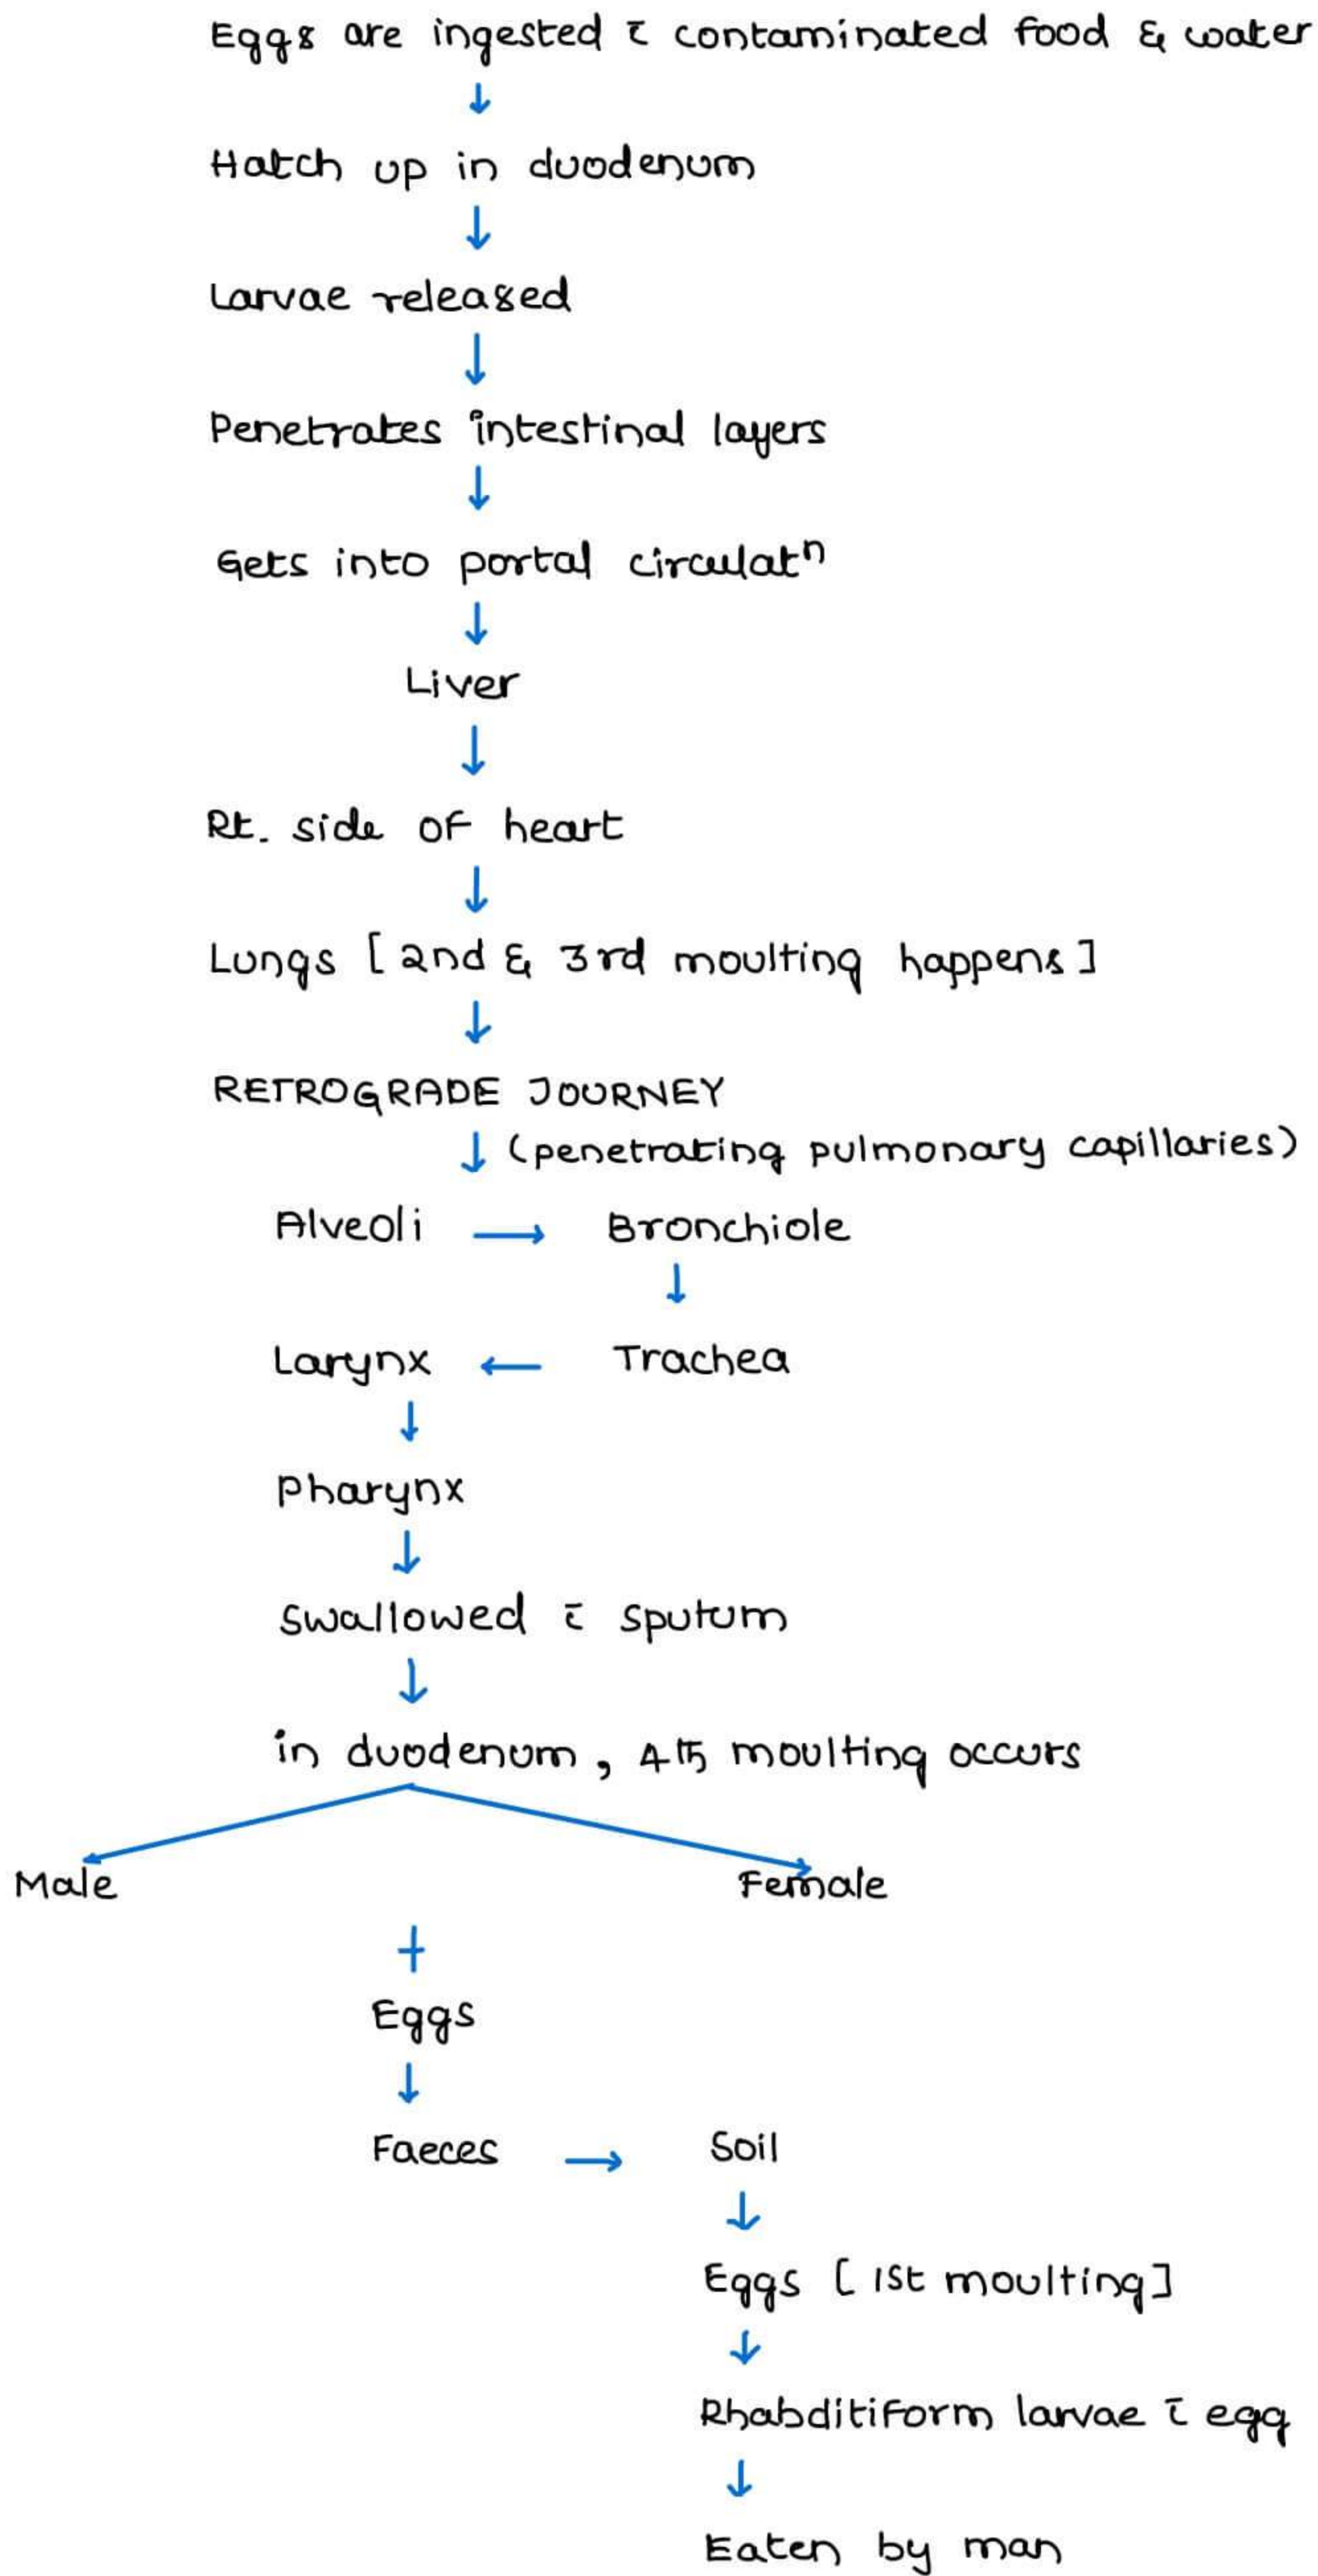 Eggs are ingested c̄ contaminated food & water
↓
Hatch up in duodenum
↓
Larvae released
↓
Penetrates intestinal layers
↓
Gets into portal circulatⁿ
↓
Liver
↓
Rt. side of heart
↓
Lungs [2nd & 3rd moulting happens]
↓
RETROGRADE JOURNEY
↓ (penetrating pulmonary capillaries)
Alveoli → Bronchiole
↓
Larynx ← Trachea
↓
Pharynx
↓
Swallowed c̄ sputum
↓
in duodenum, 4th moulting occurs
Male Female
+
Eggs
↓
Faeces → Soil
↓
Eggs [1st moulting]
↓
Rhabditiform larvae c̄ egg
↓
Eaten by man